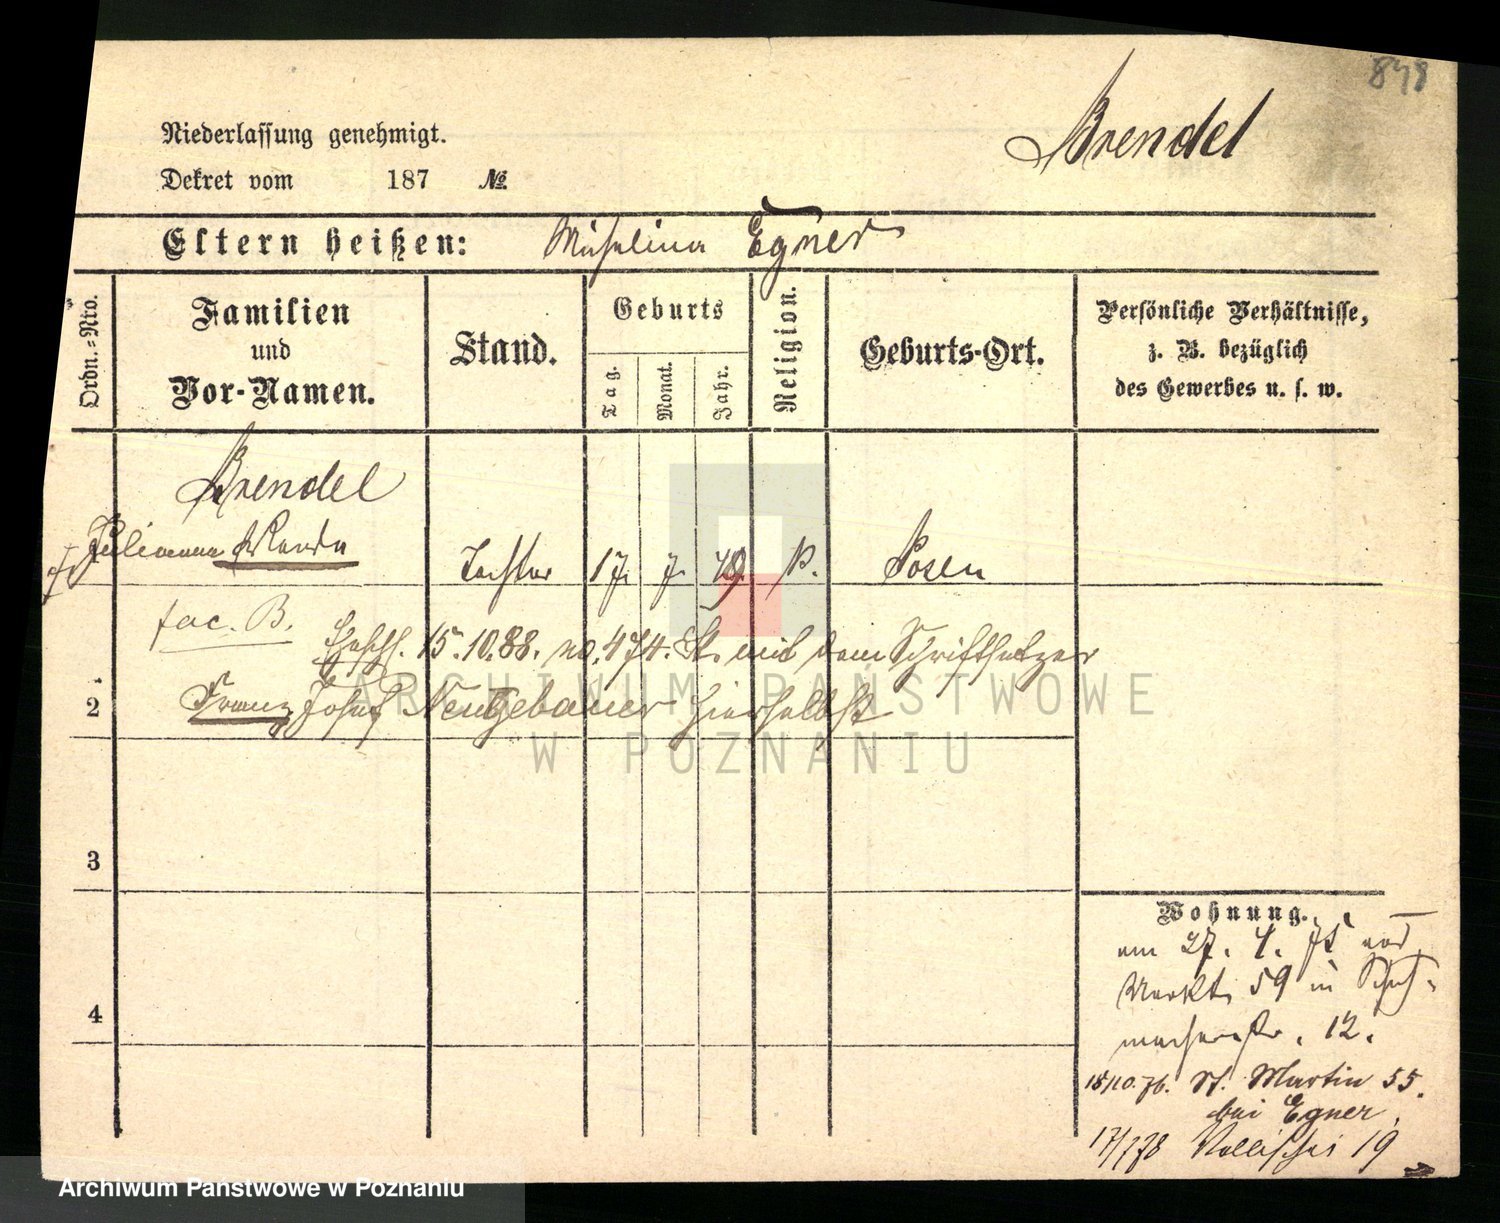 848
Brendel
Niederlassung genehmigt.
Dekret vom 187 №
Eltern heißen: Michalina Egner
Ordn.-Nro.
Familien
und
Vor-Namen.
Stand.
Geburts
Tag.
Monat.
Jahr.
Religion.
Geburts-Ort.
Persönliche Verhältnisse,
z. B. bezüglich
des Gewerbes u. s. w.
Brendel
Julianna Wanda Tochter 17. 7. 49. Posen
fac. B.
15.10.88. no. 474. St. mit dem Schriftsetzer
2 Franz Josef Neugebauer hierselbst
3
4
Wohnung.
am 27. 4. 75 von
Markt 59 in Schuh-
macherstr. 12.
18/10.76. St. Martin 55.
bei Egner.
17/7 78 19
ARCHIWUM PAŃSTWOWE
W POZNANIU
Archiwum Państwowe w Poznaniu